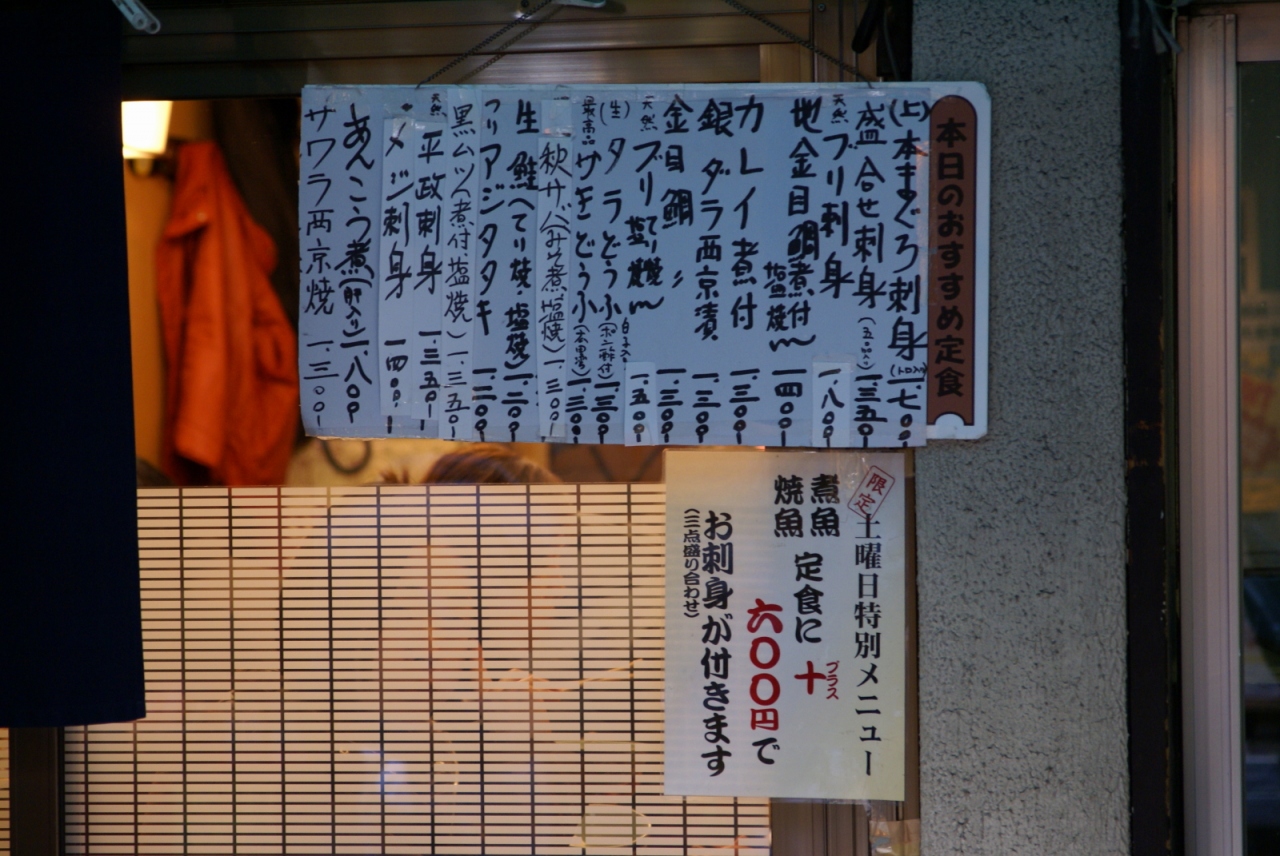 本日のおすすめ定食
(上)本まぐろ刺身(トロ入り)一.七〇〇
盛合せ刺身(五点入り)一.三五〇
天然ブリ刺身 一.八〇〇
地金目鯛煮付 塩焼 一.四〇〇
カレイ煮付 一.三〇〇
銀ダラ西京漬 一.三〇〇
金目鯛 〃 一.三〇〇
天然ブリてり焼 塩焼 一.五〇〇
(生)タラどうふ 白子入り(ポン酢付)一.三〇〇
最高品サモどうふ 一.三〇〇
秋サバ(みそ煮・塩焼)一.三〇〇
生鮭(てり焼・塩焼)一.二〇〇
アジタタキ 一.二〇〇
黒ムツ(煮付塩焼)一.三五〇
天然平政刺身 一.三五〇
メジ刺身 一.四〇〇
あんこう煮(肝入り)一.八〇〇
サワラ西京焼 一.三〇〇
限定
土曜日特別メニュー
煮魚
焼魚
定食に+プラス
六〇〇円で
お刺身が付きます
(三点盛り合わせ)